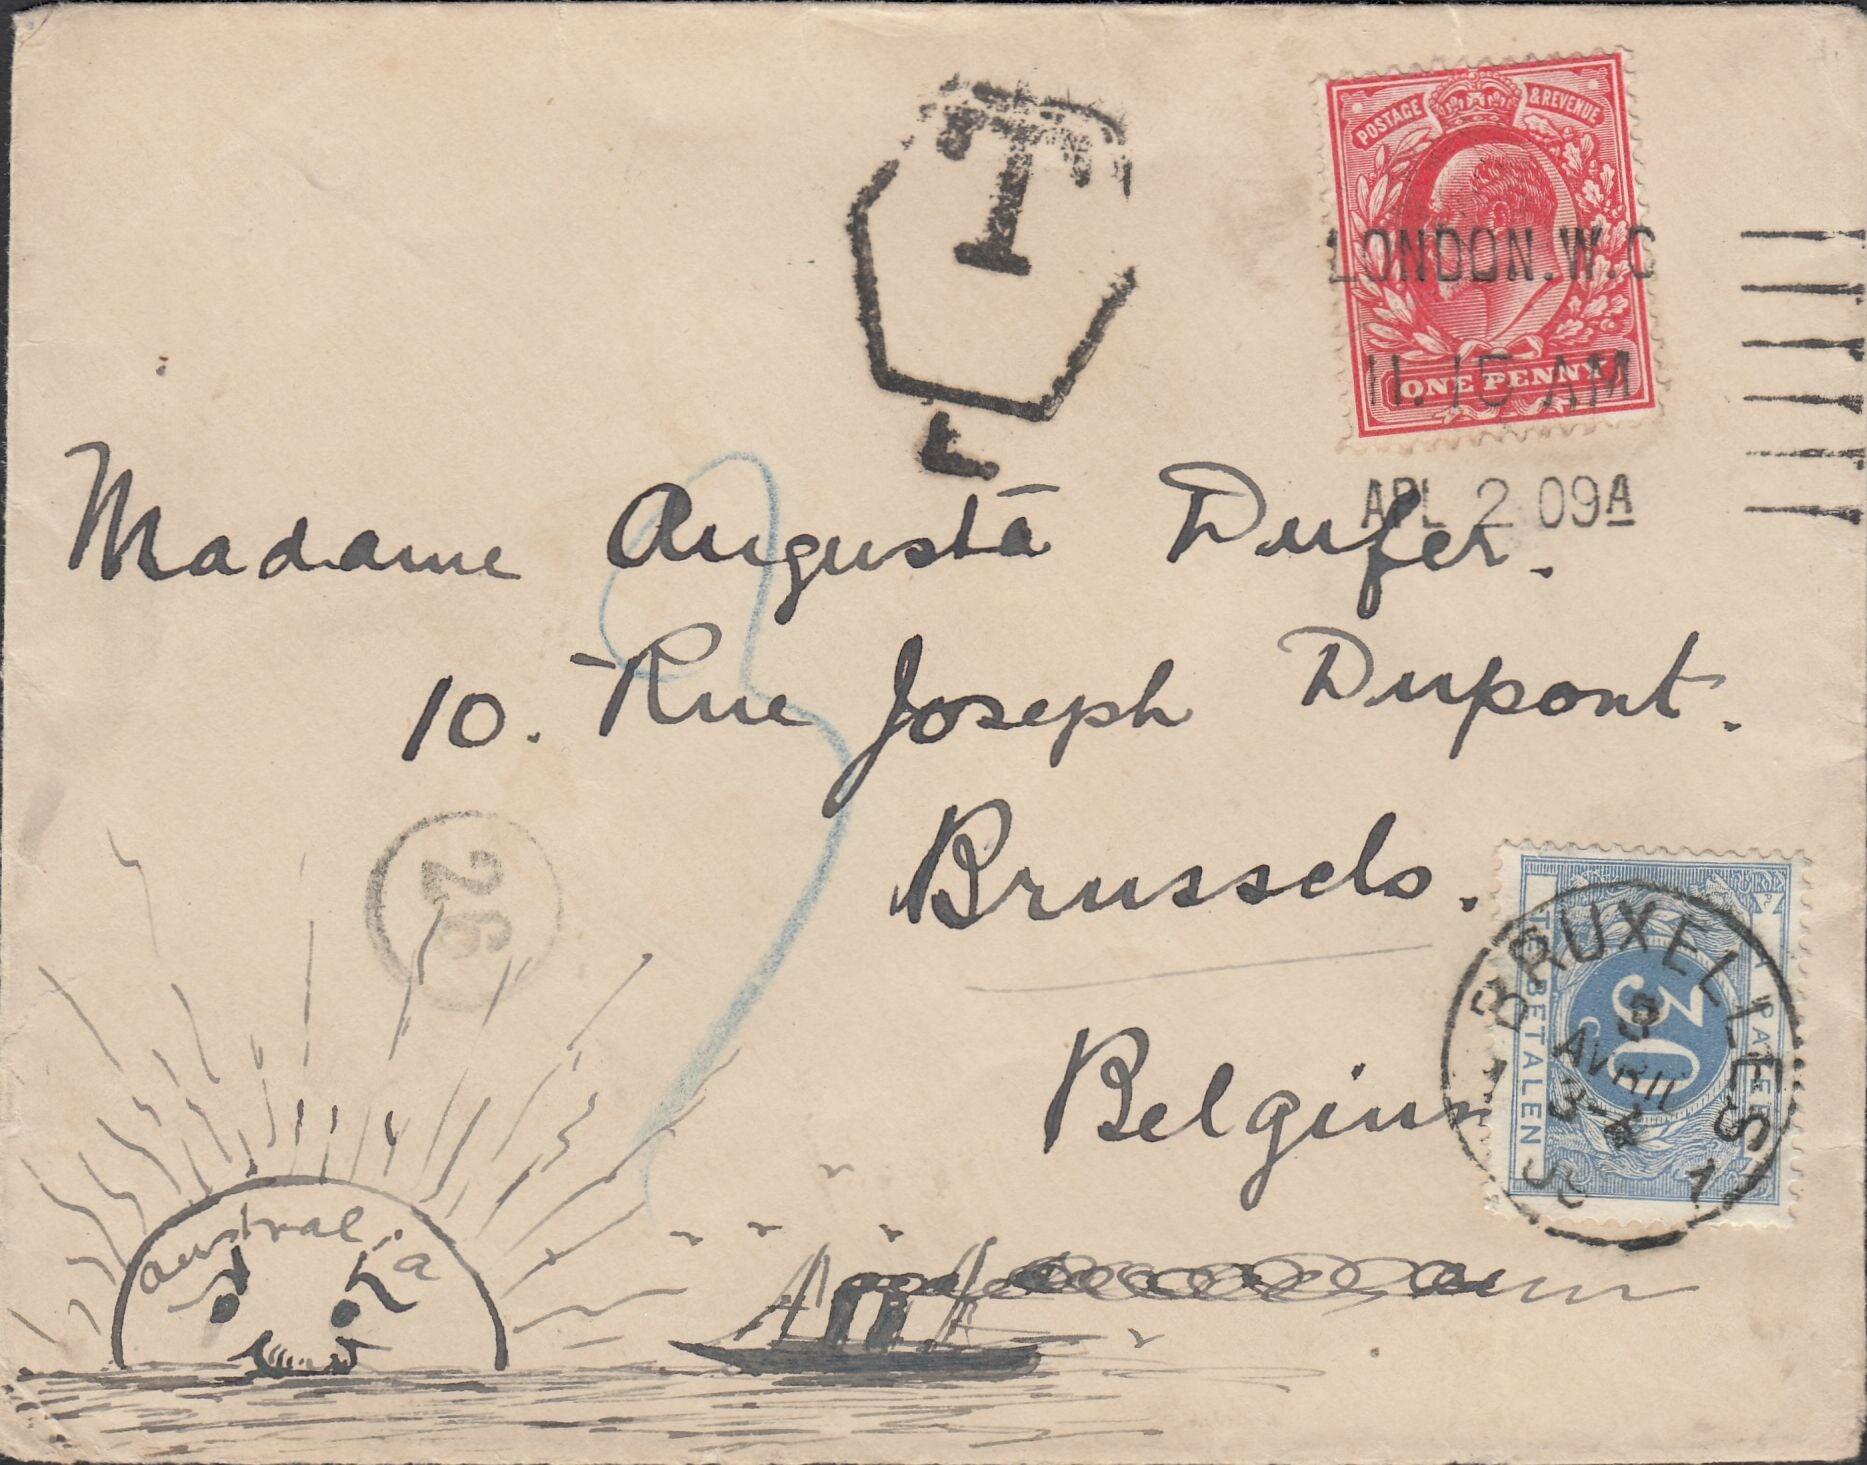 T
L
POSTAGE & REVENUE
LONDON.W.C
11.15 AM
ONE PENNY
APL 2 09A
Madame Augusta Dufer.
10. Rue Joseph Dupont.
Brussels.
Belgium
26
BRUXELLES 1
3
AVRIL
3-4
TE BETALEN
30
A PAYER
australia